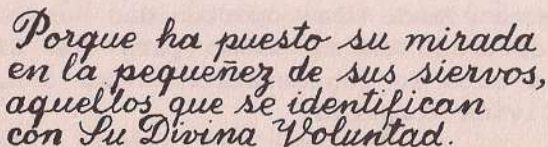 Porque ha puesto su mirada
en la pequeñez de sus siervos,
aquellos que se identifican
con Su Divina Voluntad.